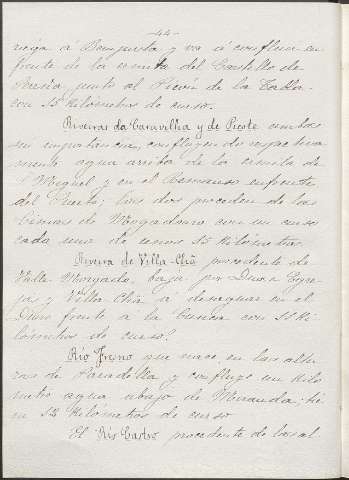 -44-
neija á Bemposta y va á confluir en
frente de la ermita del Castillo de
junto al de la
con 15 kilómetros de curso.
Riveiras da Caravilha y de Picote ambas
sin importancia, confluyendo respectiva
mente agua arriba de la ermita de
S Miguel y en el Remanso enfrente
del Puerto; los dos proceden de las
de Mogadouro con un curso
cada uno de unos 15 Kilómetros.
Riveira de Villa-Chã procedente de
Valle Mingado, baja por Duas Egre-
jas y Villa-Chã á desaguar en el
Duero frente á la con 15 Ki-
lómetros de curso.
Río Fresno que nace en las altu
ras de Paradella y confluye un Kiló
metro agua abajo de Miranda; tie
ne 52 Kilómetros de curso
El Río Castro procedente de las al